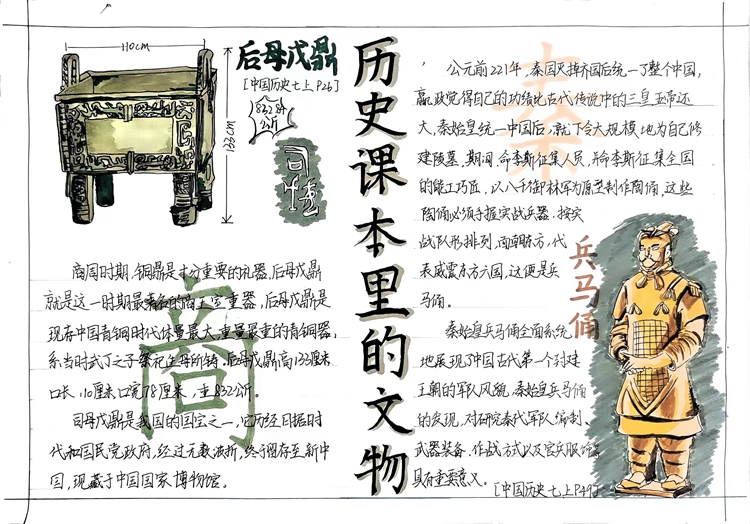 历史课本里的文物
110cm
133cm
后母戊鼎
[中国历史七上 P26]
832.84
公斤
司母戊
商
商周时期,铜鼎是十分重要的礼器,后母戊鼎
就是这一时期最著名的商王室重器,后母戊鼎是
现存中国青铜时代体量最大,重量最重的青铜器,
系当时武丁之子祭祀生母所铸,后母戊鼎高133厘米
口长110厘米口宽78厘米,重832公斤。
司母戊鼎是我国的国宝之一,它历经日据时
代和国民党政府,经过无数波折,终于留存至新中
国,现藏于中国国家博物馆。
秦
公元前221年,秦国灭掉齐国后统一了整个中国,
嬴政觉得自己的功绩比古代传说中的三皇五帝还
大,秦始皇统一中国后,就下令大规模地为自己修
建陵墓,期间,命李斯征集人员,并命李斯征集全国
的能工巧匠,以八千御林军为原型制作陶俑,这些
陶俑必须手握实战兵器,按实
战队形排列,面朝东方,代
表威震东方六国,这便是兵
马俑。
兵马俑
秦始皇兵马俑全面系统
地展现了中国古代第一个封建
王朝的军队风貌,秦始皇兵马俑
的发现,对研究秦代军队编制、
武器装备、作战方式以及官兵服饰
具有重要意义。
[中国历史七上P49]